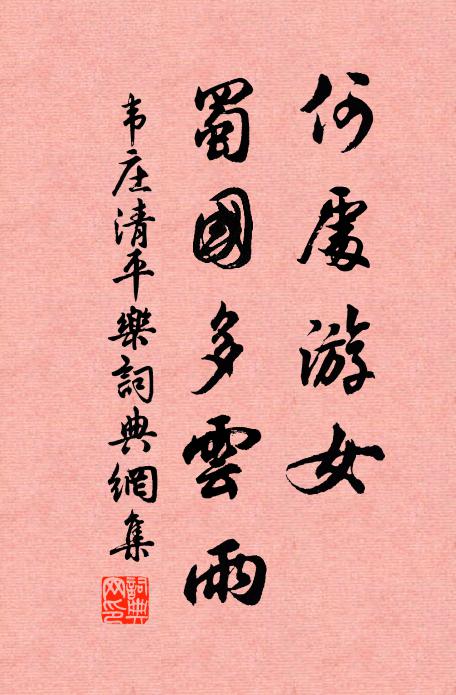 何處游女
蜀國多雲雨
韦庄清平樂詞典網集
詞典網印